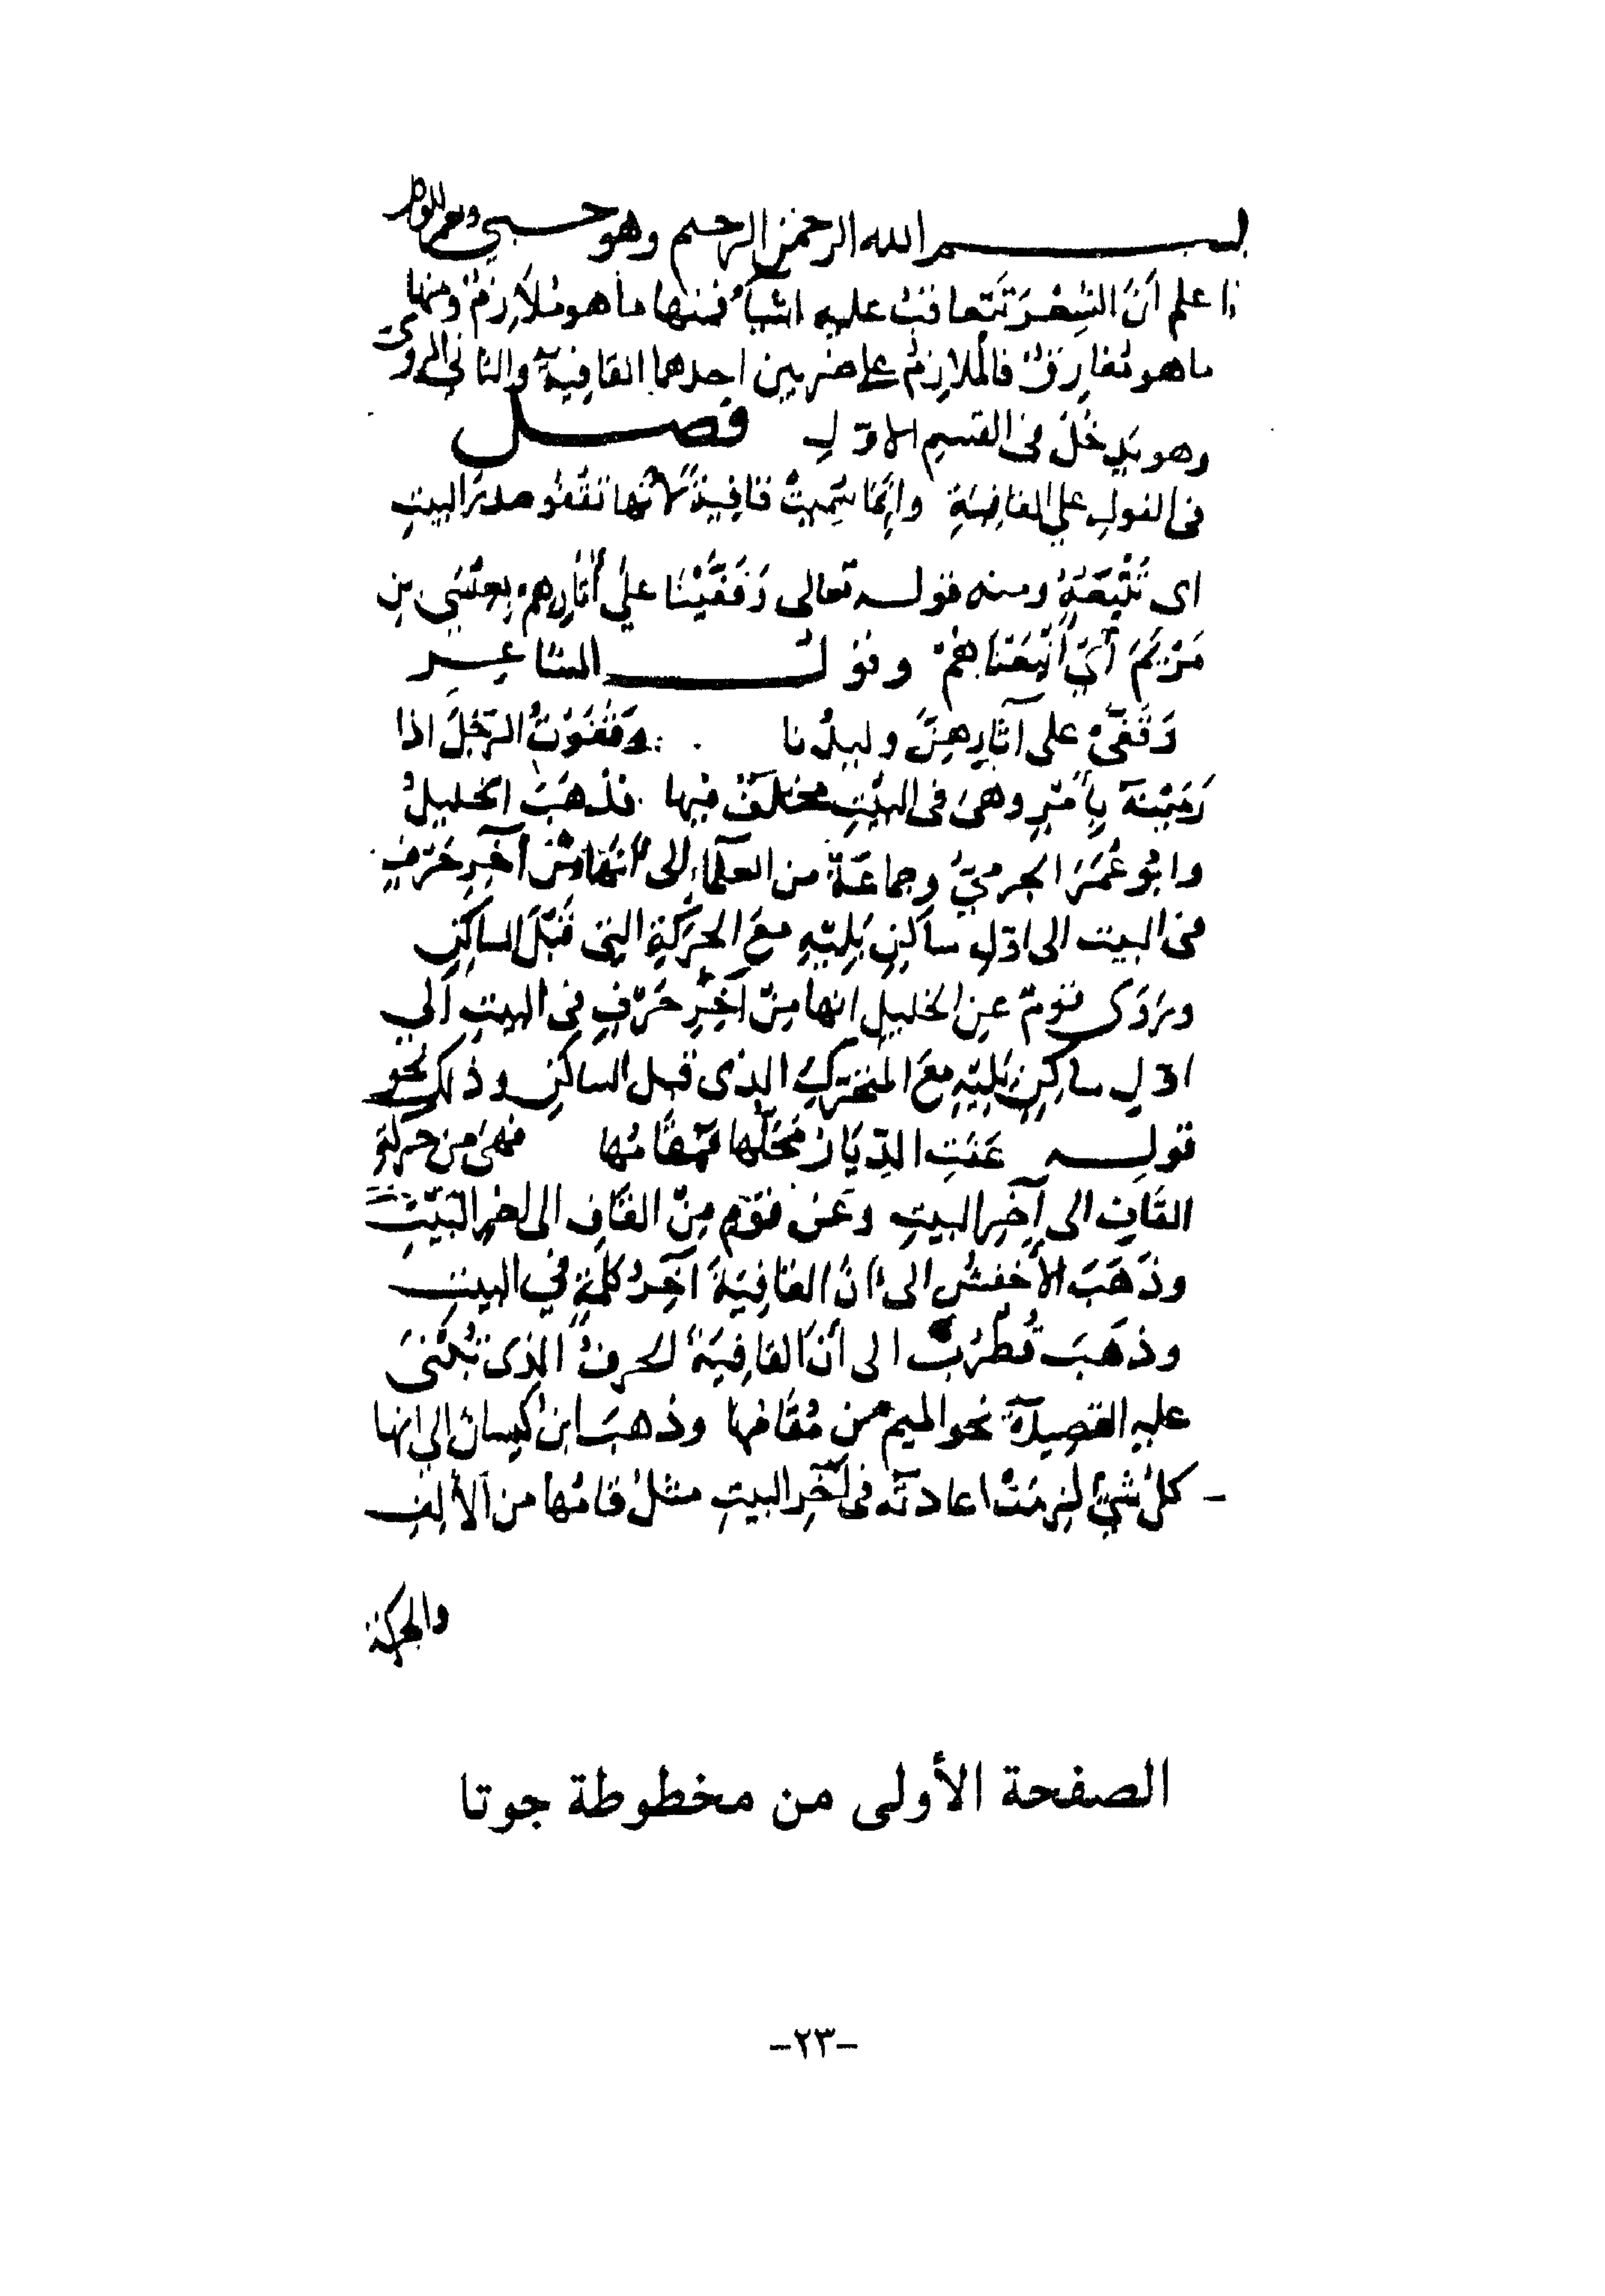 بسم الله الرحمن الرحيم وهو حسبي ونعم الوكيل
اعلم أنَّ الشِعْرَ تَتَعاقبُ عليهِ اشياءُ فمنها ما هو مُلاَزِمٌ ومنها
ما هو مُفَارِقٌ فالمُلازِمُ على ضربين احدهما القافِيَة والثاني الروىّ
وهو يَدخُلُ فى القسمِ الاوّلِ فصل
فى القولِ على القافِيَةِ وإنَّما سُمِّيَتْ قافِيةً لأنّها تقفُو صدرَ البيتِ
اى تَتْبَعُهُ ومنه قوله تعالى وَقَفَّيْنَا على آثَارِهِمْ بعِيسَى بنِ
مَرْيَمَ أَيْ أَتْبَعْنَاهُمْ وقول الشاعِر
وَقَفَّى على آثَارِهِنَّ وليدُنا وقَفَوْتُ الرَّجُلَ اذا
رَمَيْتَهُ بِأَمْرٍ وهىَ فى البَيْتِ مختلَفٌ فيها فذهَبَ الخليلُ
وابُو عُمَرَ الجرمىُّ وجماعَةٌ من العلماءِ إلى أنَّها مِنْ آخِرِ حَرْفٍ
فى البيت الى اوّلِ ساكِنٍ يَلِيْهِ معَ الحَرَكَةِ التِى قَبْلَ الساكِنِ
ويَرْوَى قومٌ عنِ الخليلِ انها مِنْ آخِرِ حَرْفٍ فى البيتِ الي
اوّلِ ساكِنٍ يَلِيْهِ معَ المُتَحَرّكِ الذى قبل الساكنِ وذلك نحو
قوله عَفَتِ الدِّيَارُ مَحَلُّها فَمُقَامُها فهىَ من حركَةِ
القَافِ الى آخِرِ البيتِ وعَنْ قومٍ مِنَ القَافِ الى اخرِ البَيْتِ
وذَهَبَ الأَخفشُ الى أنَّ القافِيَةَ آخِرُ كلمَةٍ في البيتِ
وذهَبَ قُطْرُبٌ الى أنَّ القافِيَةَ الحرفُ الذى تُبْنَى
عليهِ القصِيدَةُ نحو الميم من مُقَامُها وذهبَ ابن كيسان الى انها
كلُ شىءٍ لَزِمَتْ اعادتُه فى آخِرِ البيتِ مثلُ قامُها من الأَلِفِ
والحركة
الصفحة الأولى من مخطوطة جوتا
-٢٣-